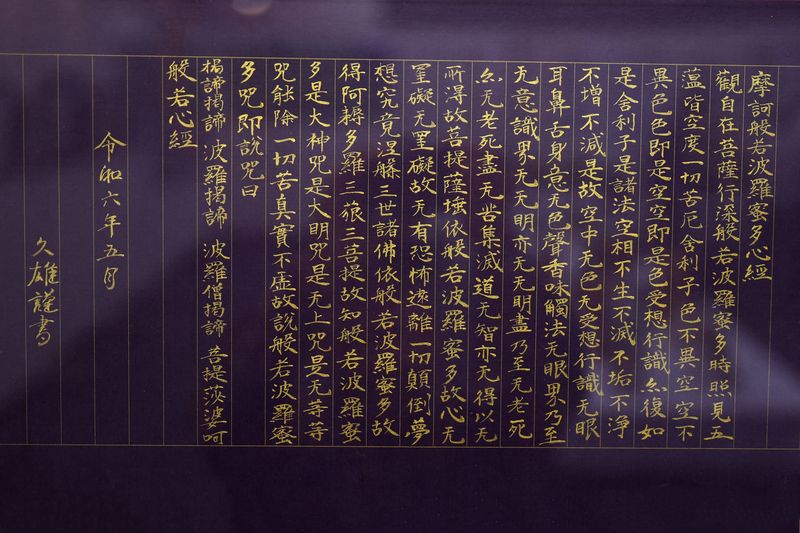 摩訶般若波羅蜜多心経
觀自在菩薩行深般若波羅蜜多時照見五
薀皆空度一切苦厄舍利子色不異空空不
異色色即是空空即是色受想行識亦復如
是舍利子是諸法空相不生不滅不垢不浄
不増不減是故空中无色无受想行識无眼
耳鼻舌身意无色聲香味觸法无眼界乃至
无意識界无无明亦无无明盡乃至无老死
亦无老死盡无苦集滅道无智亦无得以无
所得故菩提薩埵依般若波羅蜜多故心无
罣礙无罣礙故无有恐怖遠離一切顛倒夢
想究竟涅槃三世諸佛依般若波羅蜜多故
得阿耨多羅三藐三菩提故知般若波羅蜜
多是大神咒是大明咒是无上咒是无等等
咒能除一切苦真實不虚故説般若波羅蜜
多咒即説咒曰
揭諦揭諦 波羅揭諦 波羅僧揭諦 菩提莎婆呵
般若心經
令和六年五月
久雄謹書